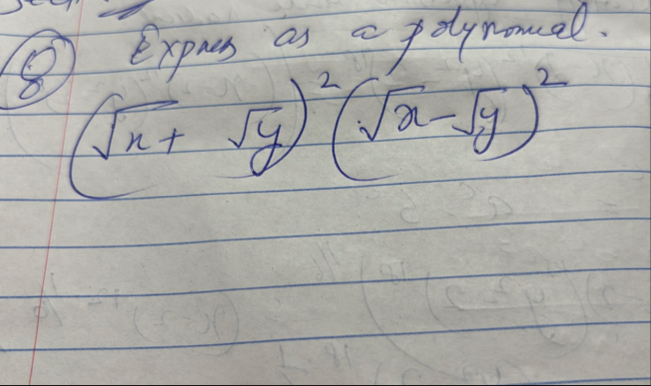 8 Express as a polynomial.
(√x + √y)² (√x - √y)²